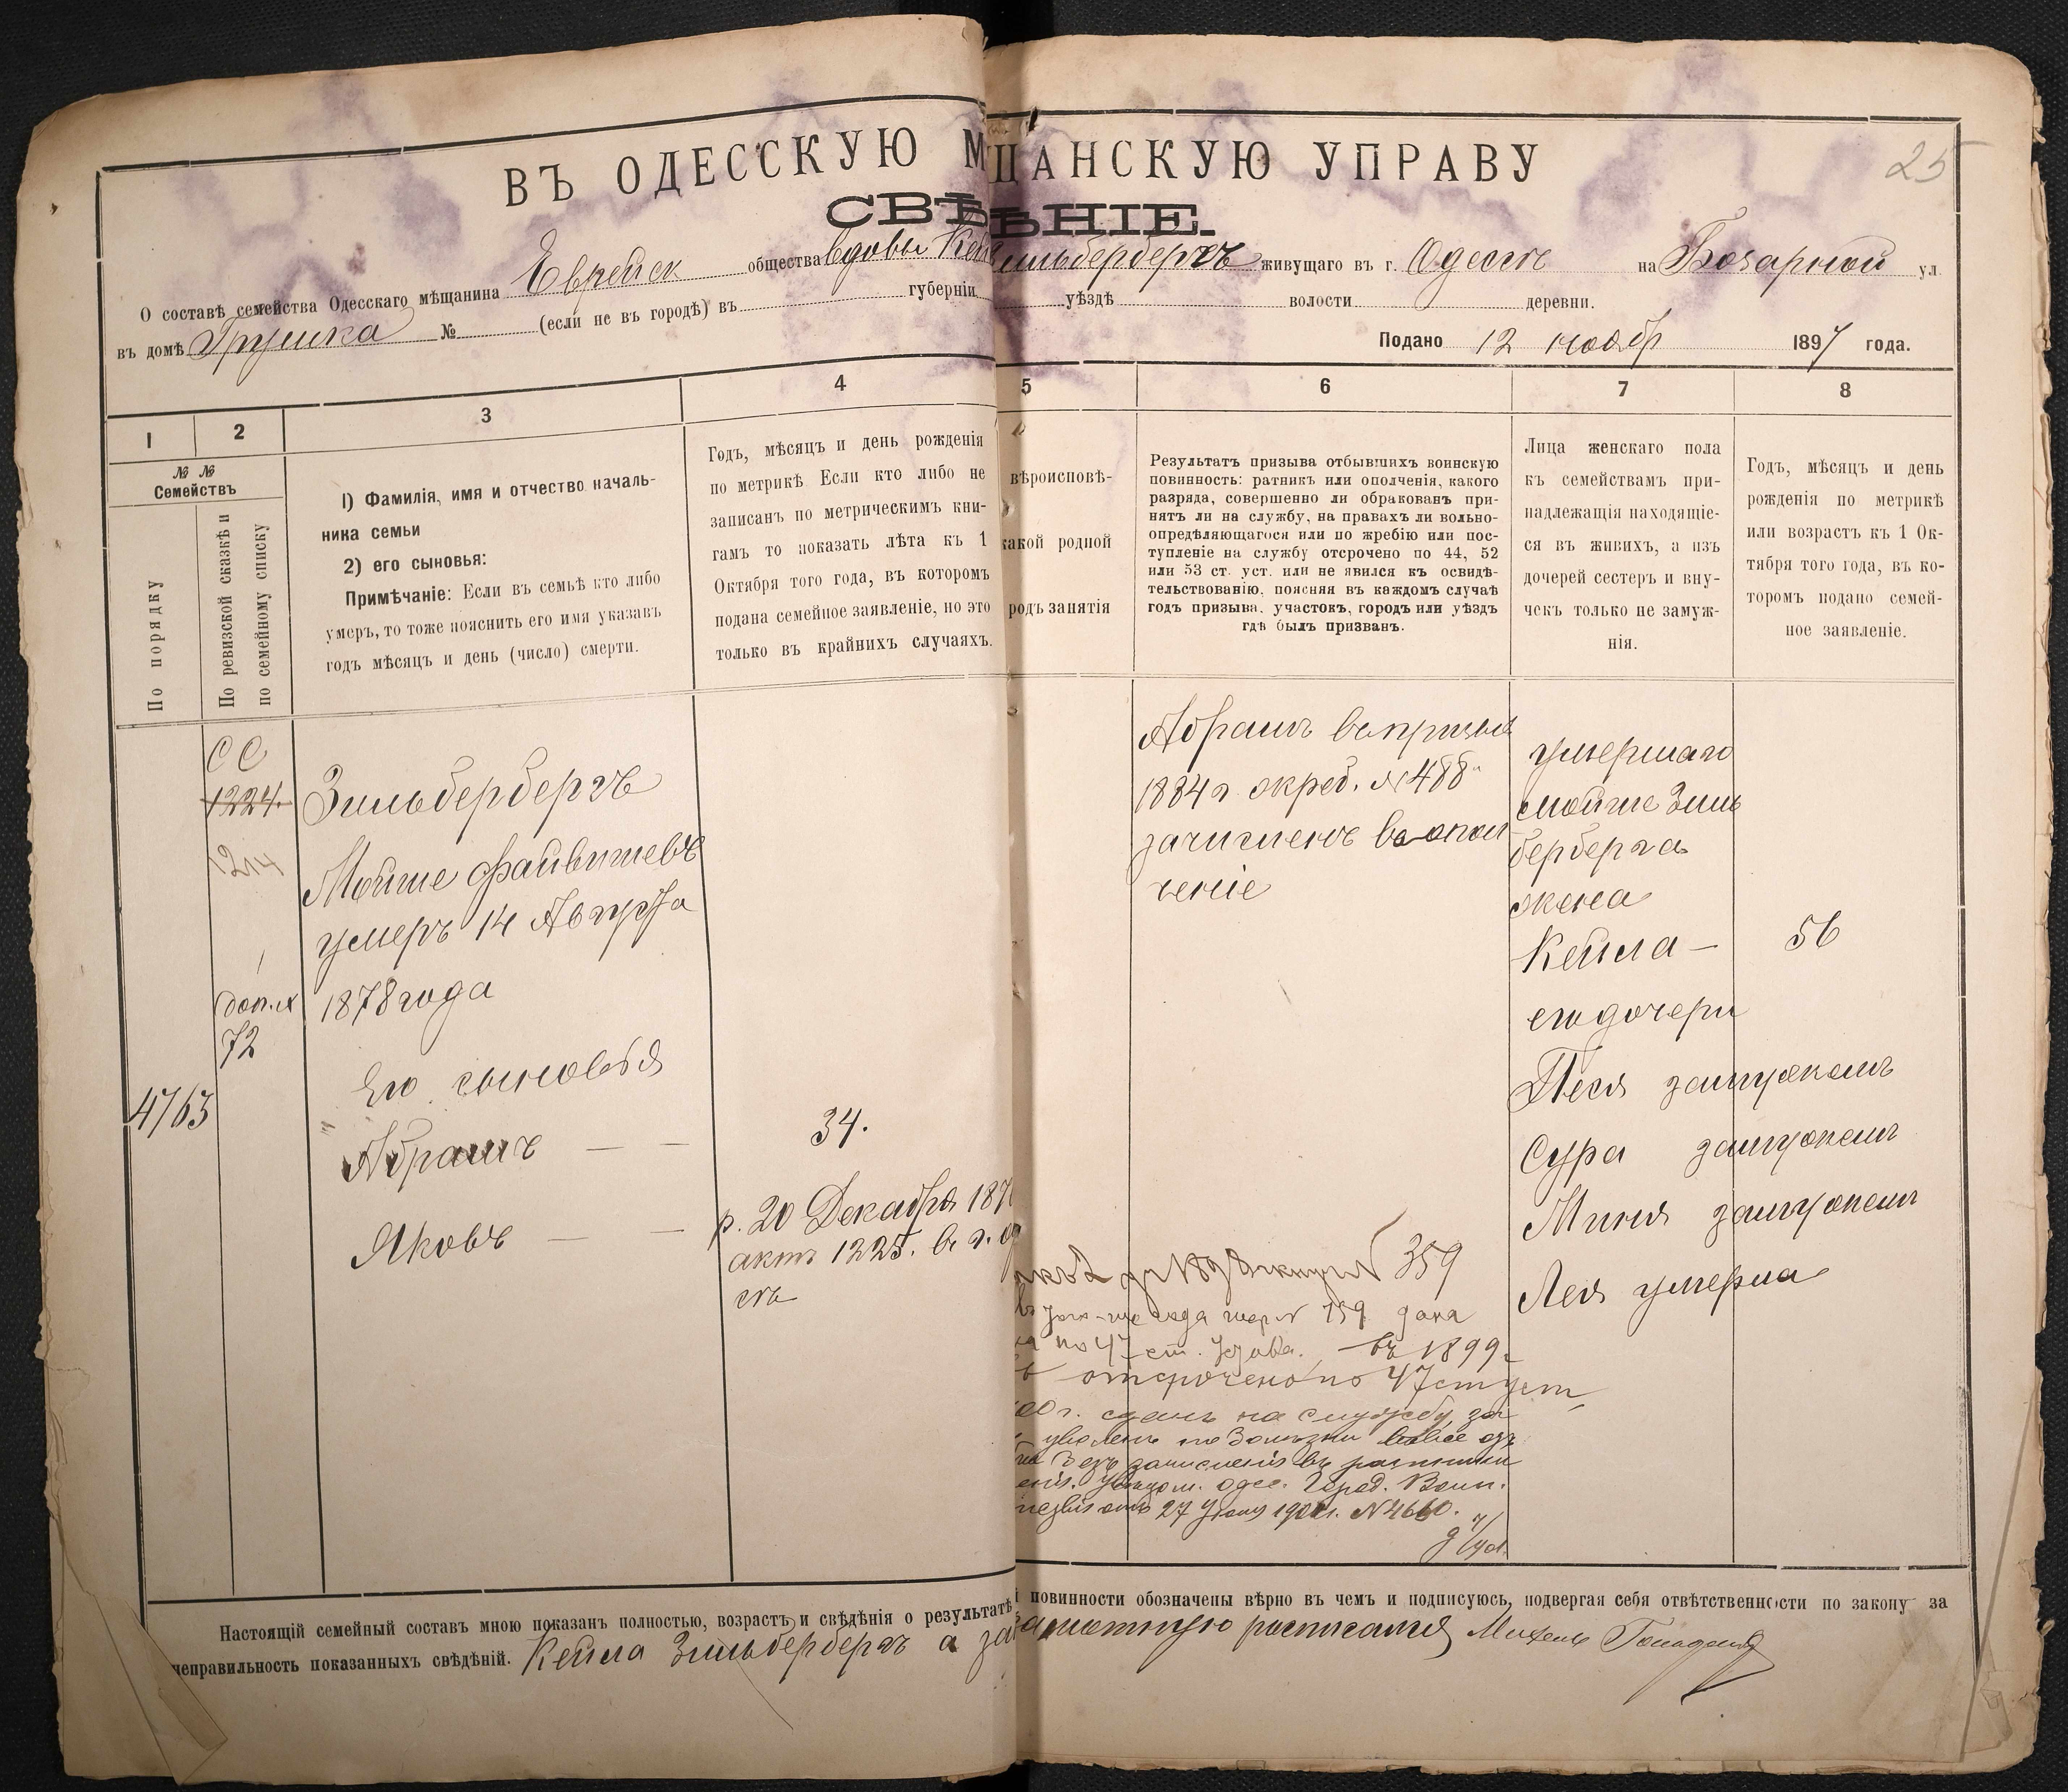 25
ВЪ ОДЕССКУЮ М ЩАНСКУЮ УПРАВУ
СВѢ ѢНІЕ.
О составѣ семейства Одесскаго мѣщанина Еврейск общества вдовы Кей ильбербергъ живущаго въ г. Одессѣ на Бочарной ул.
въ домѣ Грушка № (если не въ городѣ) въ губерніи уѣздѣ волости деревни.
Подано 12 ноябр 1897 года.
1 2 3 4 5 6 7 8
№ № Семействъ
По порядку
По ревизской сказкѣ и
по семейному списку
1) Фамилія, имя и отчество началь-
ника семьи
2) его сыновья:
Примѣчаніе: Если въ семьѣ кто либо
умеръ, то тоже пояснить его имя указавъ
годъ мѣсяцъ и день (число) смерти.
Годъ, мѣсяцъ и день рожденія
по метрикѣ Если кто либо не
записанъ по метрическимъ кни-
гамъ то показать лѣта къ 1
Октября того года, въ которомъ
подана семейное заявленіе, но это
только въ крайнихъ случаяхъ.
вѣроисповѣ-
какой родной
родъ занятія
Результатъ призыва отбывшихъ воинскую
повинность: ратникъ или ополченія, какого
разряда, совершенно ли обракованъ при-
нятъ ли на службу, на правахъ ли вольно-
опредѣляющагося или по жребію или пос-
тупленіе на службу отсрочено по 44, 52
или 53 ст. уст. или не явился къ освидѣ-
тельствованію, поясняя въ каждомъ случаѣ
годъ призыва, участокъ, городъ или уѣздъ
гдѣ былъ призванъ.
Лица женскаго пола
къ семействамъ при-
надлежащія находящіе-
ся въ живихъ, а изъ
дочерей сестеръ и вну-
чекъ только не замуж-
нія.
Годъ, мѣсяцъ и день
рожденія по метрикѣ
или возрастъ къ 1 Ок-
тября того года, въ ко-
торомъ подано семей-
ное заявленіе.
СС
1224.
1214
доп. сс
72
4763
Зильбербергъ
Мойше Файвишевъ
умеръ 14 Августа
1878 года
Его сыновья
Абрамъ — —
Яковъ — —
34.
р. 20 Декабря 187
актъ 1225. в г. Од
сѣ
Абрамъ в призыв
1884 г. жреб. № 488
зачисленъ в опол
ченіе
359
159 дана
по 47 ст. въ 1899 г.
отсрочено по 47 ст уст
00 г. сданъ на службу,
уволенъ по болезни вовсе
безъ зачисленія въ ратники
Увѣдом. Одес. Город. Воин.
27 № 4660.
умершаго
Мойше Зиль
берберга
жена
Кейла — 56
его дочери
Песя замужемъ
Сура замужемъ
Миня замужемъ
Лея умерла
Настоящій семейный составъ мною показанъ полностью, возрастъ и свѣдѣнія о результатѣ й повинности обозначены вѣрно въ чемъ и подписуюсь, подвергая себя отвѣтственности по закону за
неправильность показанныхъ свѣдѣній. Кейла Зильбербергъ а за амотную росписался Михель